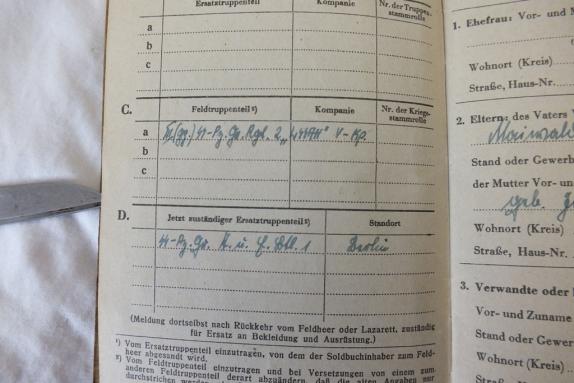 Ersatztruppenteil Kompanie Nr. der Truppenstammrolle
a
b
c
C. Feldtruppenteil ²) Kompanie Nr. der Kriegsstammrolle
a (gp.) SS-Pz. Gr. Rgt. 2 V-Kp.
b
c
D. Jetzt zuständiger Ersatztruppenteil ²) Standort
SS-Pz. Gr. A. u. E. Btl. 1 Berlin
(Meldung dortselbst nach Rückkehr vom Feldheer oder Lazarett, zuständig
für Ersatz an Bekleidung und Ausrüstung.)
¹) Vom Ersatztruppenteil einzutragen, von dem der Soldbuchinhaber zum Feld-
heer abgesandt wird.
²) Vom Feldtruppenteil einzutragen und bei Versetzungen von einem zum
anderen Feldtruppenteil derart abzuändern, daß die alten Angaben nur
durchstrichen
1. Ehefrau: Vor- und
Wohnort (Kreis)
Straße, Haus-Nr.
2. Eltern: des Vaters
Stand oder Gewerb
der Mutter Vor- un
geb.
Wohnort (Kreis)
Straße, Haus-Nr.
3. Verwandte oder
Vor- und Zuname
Stand oder Gewer
Wohnort (Kreis)
Straße, Haus-Nr.